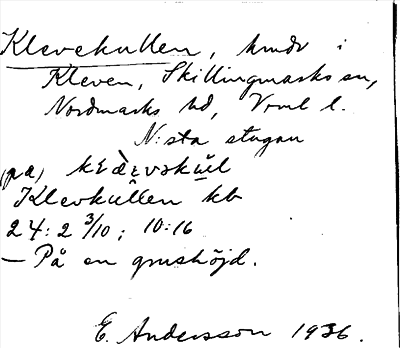 Klevekullen, hmdr i
Kleven, Skillingmarks sn,
Nordmarks hd, Vrml l.
N:sta stugan
(pa)
Klevkullen kb
24:2 3/10; 10:16
— På en grushöjd.
E. Andersson 1936.